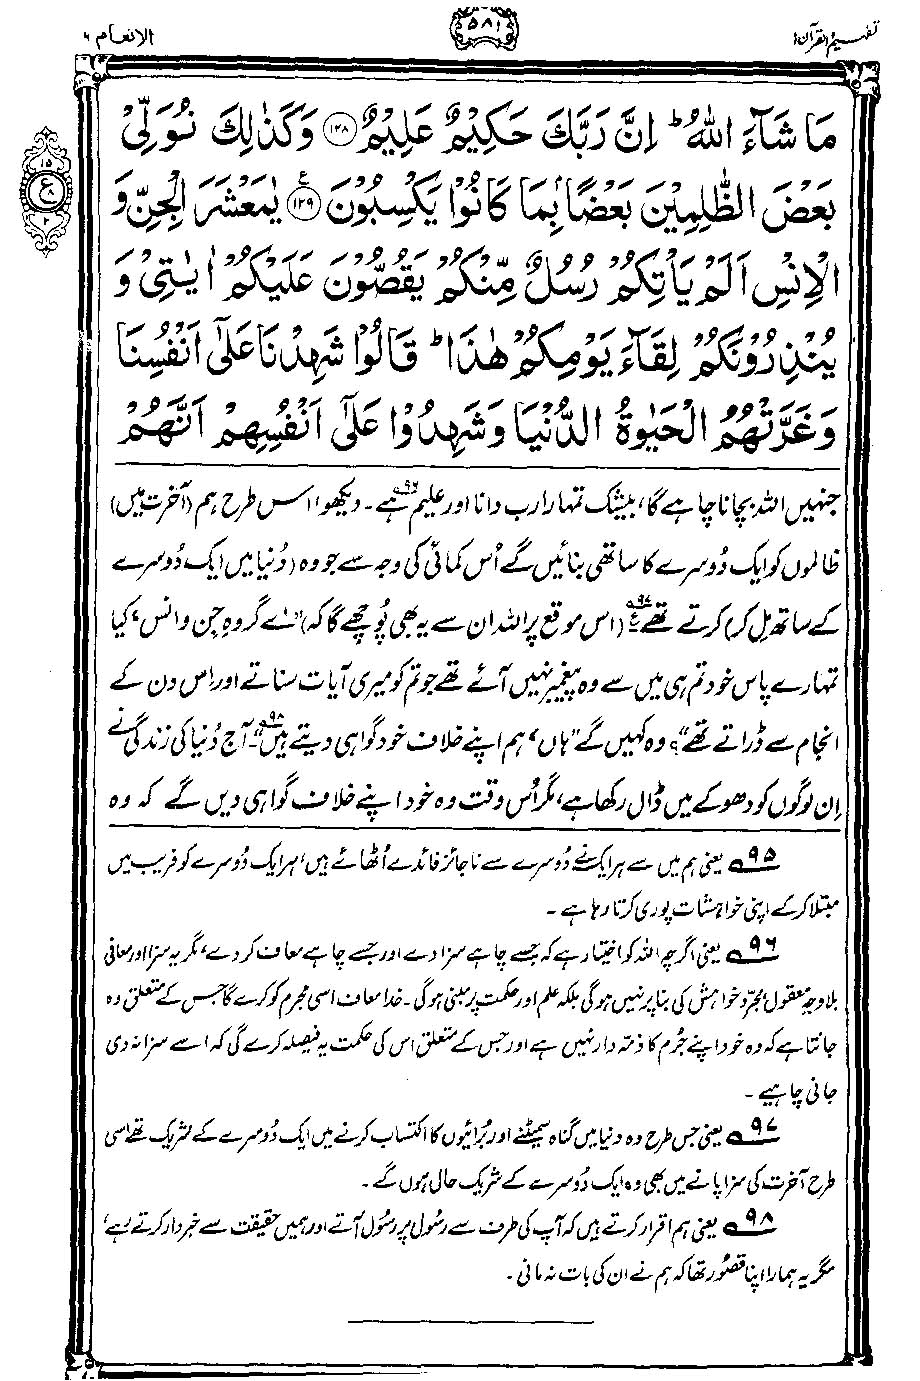 تفہیم القرآن ۱
۵۸۱
الانعام ۶
مَا شَآءَ اللّٰهُ ؕ اِنَّ رَبَّكَ حَكِيْمٌ عَلِيْمٌ ﴿۱۲۸﴾ وَكَذٰلِكَ نُوَلِّيْ
بَعْضَ الظّٰلِمِيْنَ بَعْضًۢا بِمَا كَانُوْا يَكْسِبُوْنَ ﴿۱۲۹﴾ يٰمَعْشَرَ الْجِنِّ وَ
الْاِنْسِ اَلَمْ يَاْتِكُمْ رُسُلٌ مِّنْكُمْ يَقُصُّوْنَ عَلَيْكُمْ اٰيٰتِيْ وَ
يُنْذِرُوْنَكُمْ لِقَآءَ يَوْمِكُمْ هٰذَا ؕ قَالُوْا شَهِدْنَا عَلٰٓى اَنْفُسِنَا
وَغَرَّتْهُمُ الْحَيٰوةُ الدُّنْيَا وَشَهِدُوْا عَلٰٓى اَنْفُسِهِمْ اَنَّهُمْ
جنہیں اللہ بچانا چاہے گا، بیشک تمہارا رب دانا اور علیم ہے۹۶۔ دیکھو، اس طرح ہم (آخرت میں)
ظالموں کو ایک دُوسرے کا ساتھی بنائیں گے اُس کمائی کی وجہ سے جو وہ (دُنیا میں ایک دُوسرے
کے ساتھ مل کر) کرتے تھے۹۷۔ ع (اس موقع پر اللہ ان سے یہ بھی پُوچھے گا کہ) ”اے گروہِ جن و انس، کیا
تمہارے پاس خود تم ہی میں سے وہ پیغمبر نہیں آئے تھے جو تم کو میری آیات سناتے اور اس دن کے
انجام سے ڈراتے تھے“؟ وہ کہیں گے ”ہاں، ہم اپنے خلاف خود گواہی دیتے ہیں۹۸“۔ آج دُنیا کی زندگی نے
اِن لوگوں کو دھوکے میں ڈال رکھا ہے، مگر اُس وقت وہ خود اپنے خلاف گواہی دیں گے کہ وہ
۹۵ یعنی ہم میں سے ہر ایک نے دُوسرے سے ناجائز فائدے اُٹھائے ہیں، ہر ایک دُوسرے کو فریب میں
مبتلا کر کے اپنی خواہشات پوری کرتا رہا ہے۔
۹۶ یعنی اگرچہ اللہ کو اختیار ہے کہ جسے چاہے سزا دے اور جسے چاہے معاف کر دے، مگر یہ سزا اور معافی
بلا وجہِ معقول، مجرّد خواہش کی بنا پر نہیں ہوگی بلکہ علم اور حکمت پر مبنی ہوگی۔ خدا معاف اسی مجرم کو کرے گا جس کے متعلق وہ
جانتا ہے کہ وہ خود اپنے جُرم کا ذمّہ دار نہیں ہے اور جس کے متعلق اس کی حکمت یہ فیصلہ کرے گی کہ اسے سزا نہ دی
جانی چاہیے۔
۹۷ یعنی جس طرح وہ دنیا میں گناہ سمیٹنے اور بُرائیوں کا اکتساب کرنے میں ایک دُوسرے کے شریک تھے اسی
طرح آخرت کی سزا پانے میں بھی وہ ایک دُوسرے کے شریک حال ہوں گے۔
۹۸ یعنی ہم اقرار کرتے ہیں کہ آپ کی طرف سے رسُول پر رسُول آتے اور ہمیں حقیقت سے خبردار کرتے رہے،
مگر یہ ہمارا اپنا قصُور تھا کہ ہم نے ان کی بات نہ مانی۔
۱۵
ع
۲